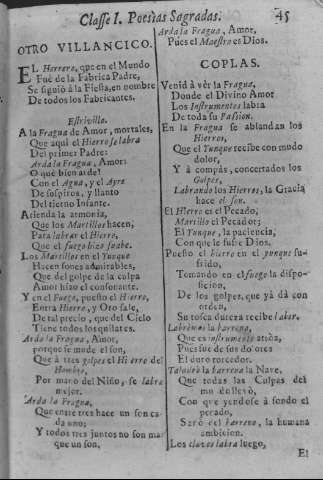 Classe I. Poesias Sagradas. 45
OTRO VILLANCICO.
EL Herrero, que en el Mundo
Fuè de la Fabrica Padre,
Se siguiò à la Fiesta, en nombre
De todos los Fabricantes.
Estrivillo.
A la Fragua de Amor, mortales,
Que aqui el Hierro se labra
Del primer Padre:
Arda la Fragua, Amor:
O què bien arde!
Con el Agua, y el Ayre
De sospiros, y llanto
Del tierno Infante.
Atienda la armonia,
Que los Martillos hacen,
Para labrar el Hierro,
Que el fuego hizo suave.
Los Martillos en el Yunque
Hacen sones admirables,
Que del golpe de la culpa
Amor hizo el consonante.
Y en el Fuego, puesto el Hierro,
Entra Hierro, y Oro sale,
De tal precio, que del Cielo
Tiene todos los quilates.
Arda la Fragua, Amor,
porque se mude el son,
Que à tres golpes el Hierro del
Hombre,
Por mano del Niño, se labra
mejor.
Arda la Fragua,
Que entre tres hace un son cada
uno;
Y todos tres juntos no son mas
que un son,
Arda la Fragua, Amor,
Pues el Maestro es Dios.
COPLAS.
Venid à vèr la Fragua,
Donde el Divino Amor
Los Instrumentos labra
De toda su Passion.
En la Fragua se ablandan los
Hierros,
Que el Yunque recibe con mudo
dolor,
Y à compàs, concertados los
Golpes,
Labrando los Hierros, la Gracia
hace el son.
El Hierro es el Pecado,
Martillo el Pecador;
El Yunque, la paciencia,
Con que le sufre Dios.
Puesto el hierro en el yunque sufrido,
Tomando en el fuego la disposicion,
De los golpes, que yà dà con
orden,
Su tosca dureza recibe labor.
la barrena,
Que es instrumento atròz,
Pues fue de sus dolores
El duro torcedor.
la barrena la Nave,
Que todas las Culpas del
llevò,
Con que yendose à fondo el
pecado,
Sacò del barreno, la humana
ambicion.
Los clavos labra luego,
El